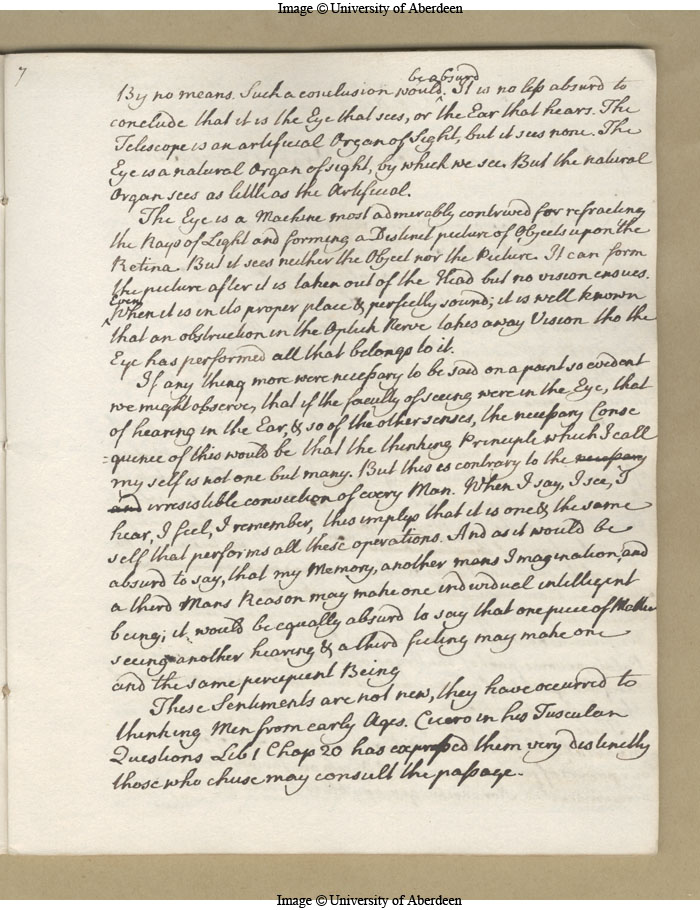 Image © University of Aberdeen
7
be absurd
By no means. Such a conclusion would ^. It is no less absurd to
conclude that it is the Eye that sees, or the Ear that hears. The
Telescope is an artificial Organ of Sight, but it sees none. The
Eye is a natural Organ of sight, by which we see. But the natural
Organ sees as little as the Artificial.
The Eye is a Machine most admirably contrived for refracting
the Rays of Light and forming a Distinct picture of Objects upon the
Retina. But it sees neither the Object nor the Picture. It can form
the picture after it is taken out of the Head but no vision ensues.
Even
^ When it is in its proper place & perfectly sound; it is well known
that an obstruction in the Optick Nerve takes away Vision tho the
Eye has performed all that belongs to it.
If any thing more were necessary to be said on a point so evident
we might observe, that if the faculty of seeing were in the Eye, that
of hearing in the Ear, & so of the other senses, the necessary Conse
=quence of this would be that the thinking Principle which I call
my self is not one but many. But this is contrary to the necessary
and irresistible conviction of every Man. When I say, I see, I
hear, I feel, I remember, this implys that it is one & the same
self that performs all these operations. And as it would be
absurd to say, that my Memory, another mans Imagination, and
a third Mans Reason may make one individual intelligent
being; it would be equally absurd to say that one piece of Matter
seeing another hearing & a third feeling may make one
and the same percipient Being
These Sentiments are not new, they have occurred to
thinking Men from early Ages. Cicero in his Tusculan
Questions Lib 1 Chap 20 has expressed them very distinctly
those who chuse may consult the passage.
Image © University of Aberdeen